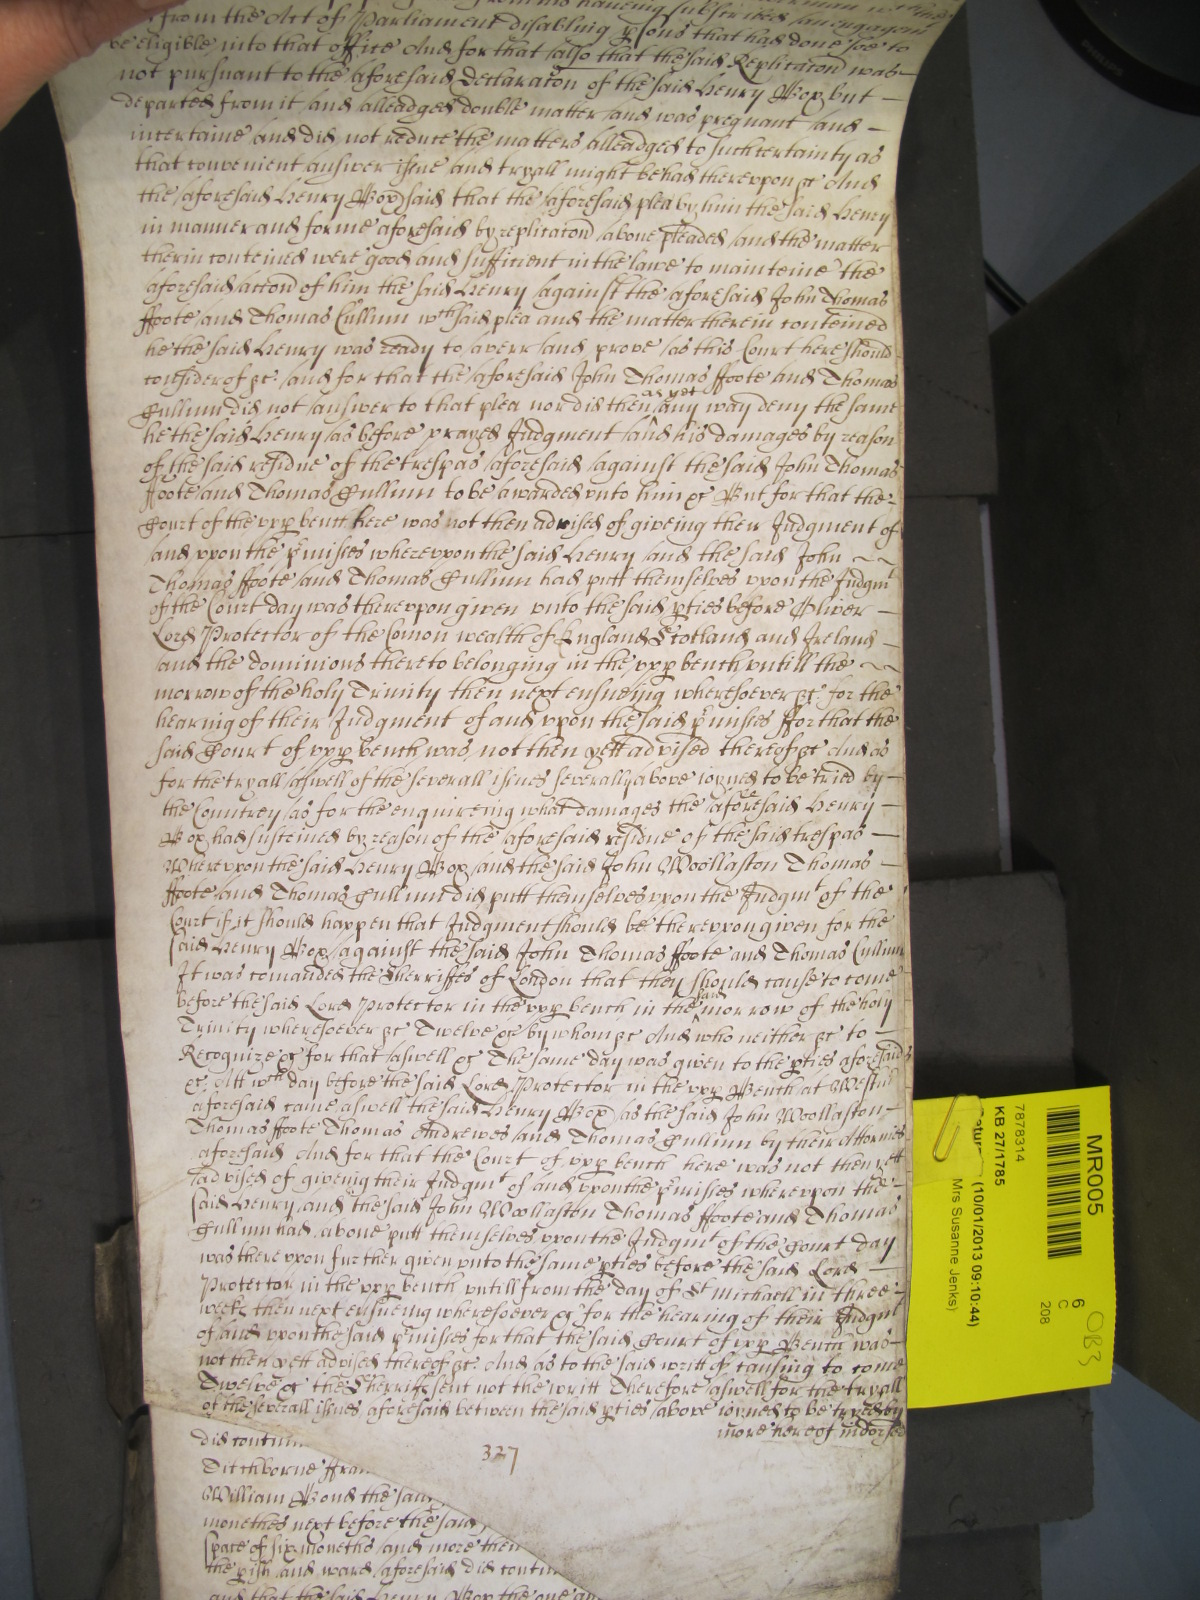 from his haveing subscribed an engagem
from the Act of Parliament disabling psons that had done soe to
be eligible into that office And for that also that the said Replicacon was
not pursuant to the aforesaid Declaracon of the said Henry Box but
departed from it and alleadged double matter and was pregnant and
incertaine and did not reduce the matters alleadged to such certainty as
that convenient answer issue and tryall might be had therevpon &c And
the aforesaid Henry Box said that the aforesaid plea by him the said Henry
in manner and forme aforesaid by replicacon above pleaded and the matter
therin conteined were good and sufficient in the lawe to mainteine the
aforesaid accon of him the said Henry against the aforesaid John Thomas
ffoote and Thomas Cullum wch said plea and the matter therein conteined
he the said Henry was ready to averr and prove as this Court here should
consider of &c and for that the aforesaid John Thomas ffoote and Thomas
Cullum did not answer to that plea nor did then as yet any way deny the same
he the said Henry as before prayed Judgment and his damages by reason
of the said residue of the trespas aforesaid against the said John Thomas
ffoote and Thomas Cullum to be awarded vnto him &c But for that the
Court of the vpp bench here was not then advised of giveing their Judgment of
and vpon the pmisses wherevpon the said Henry and the said John
Thomas ffoote and Thomas Cullum had putt themselves vpon the Judgmt
of the Court day was therevpon given vnto the said pties before Oliver
Lord Protector of the Comon wealth of England Scotland and Ireland
and the dominions thereto belonging in the vpp bench vntill the
morrow of the holy Trinity then next ensueing wheresoever &c for the
hearing of their Judgment of and vpon the said pmisses ffor that the
said Court of vpp bench was not then yett advised thereof &c And as
for the tryall aswell of the severall issues severally above ioyned to be tried by
the Countrey as for the enquireing what damages the aforesaid Henry
Box had susteined by reason of the aforesaid residue of the said trespas
Wherevpon the said Henry Box and the said John Woollaston Thomas
ffoote and Thomas Cullum did putt themselves vpon the Judgmt of the
Court if it should happen that Judgment should be therevpon given for the
said Henry Box against the said John Thomas ffoote and Thomas Cullum
It was comanded the Sherriffes of London that they should cause to come
before the said Lord Protector in the vpp bench in the said morrow of the holy
Trinity wheresoever &c Twelve &c by whom &c And who neither &c to
Recognize &c for that aswell &c The same day was given to the pties aforesaid
&c. Att wch day before the said Lord Protector in the vpp Bench at Westm
aforesaid came aswell the said Henry Box as the said John Woollaston
Thomas ffoote Thomas Andrewes and Thomas Cullum by their Attornies
aforesaid And for that the Court of vpp bench here was not then yett
advised of giveing their Judgmt of and vpon the pmisses wherevpon the
said Henry and the said John Woollaston Thomas ffoote and Thomas
Cullum had above putt themselves vpon the Judgmt of the Court day
was therevpon further given vnto the same pties before the said Lord
Protector in the vpp bench vntill from the day of St Michaell in three
weeks then next ensueing wheresoever &c for the hearing of their Judgmt
of and vpon the said pmisses for that the said Court of vpp Bench was
not then yett advised thereof &c. And as to the said writt of causing to come
Twelve &c the Sherriffs sent not the writt Therefore aswell for the tryall
of the severall issues aforesaid between the said pties above ioyned to be tryed by
more hereof indorsed
327
did contin
Ditchborne ffran
William Bond the said
monethes next before the said
space of six moneths and more then
the pish and ward aforesaid did contin
and that the said Henry Box the one an
MR005
6
C
208
OB3
7878314
KB 27/1785
(10/01/2013 09:10:44)
Mrs Susanne Jenks)
PHILIPS